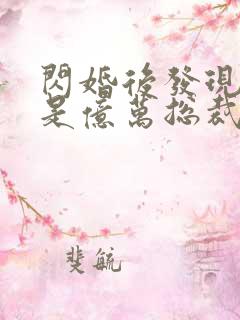 閃婚後發現
是億萬總裁
斐航